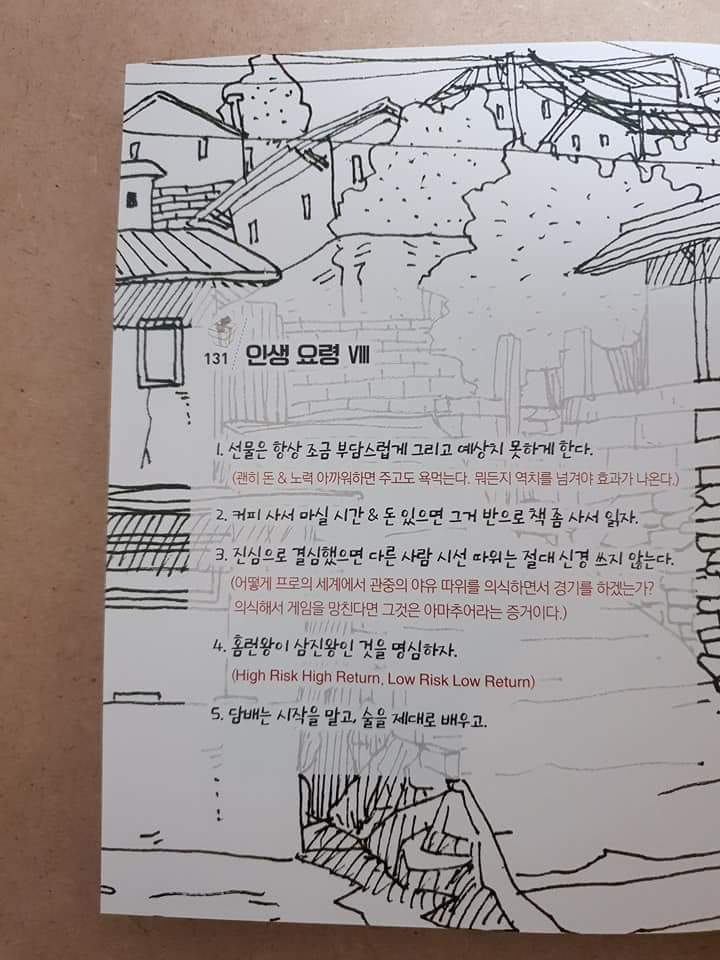 131 인생 요령 Ⅷ
1. 선물은 항상 조금 부담스럽게 그리고 예상치 못하게 한다.
(괜히 돈 & 노력 아까워하면 주고도 욕먹는다. 뭐든지 역치를 넘겨야 효과가 나온다.)
2. 커피 사서 마실 시간 & 돈 있으면 그거 반으로 책 좀 사서 읽자.
3. 진심으로 결심했으면 다른 사람 시선 따위는 절대 신경 쓰지 않는다.
(어떻게 프로의 세계에서 관중의 야유 따위를 의식하면서 경기를 하겠는가?
의식해서 게임을 망친다면 그것은 아마추어라는 증거이다.)
4. 홈런왕이 삼진왕인 것을 명심하자.
(High Risk High Return, Low Risk Low Return)
5. 담배는 시작을 말고, 술을 제대로 배우고.